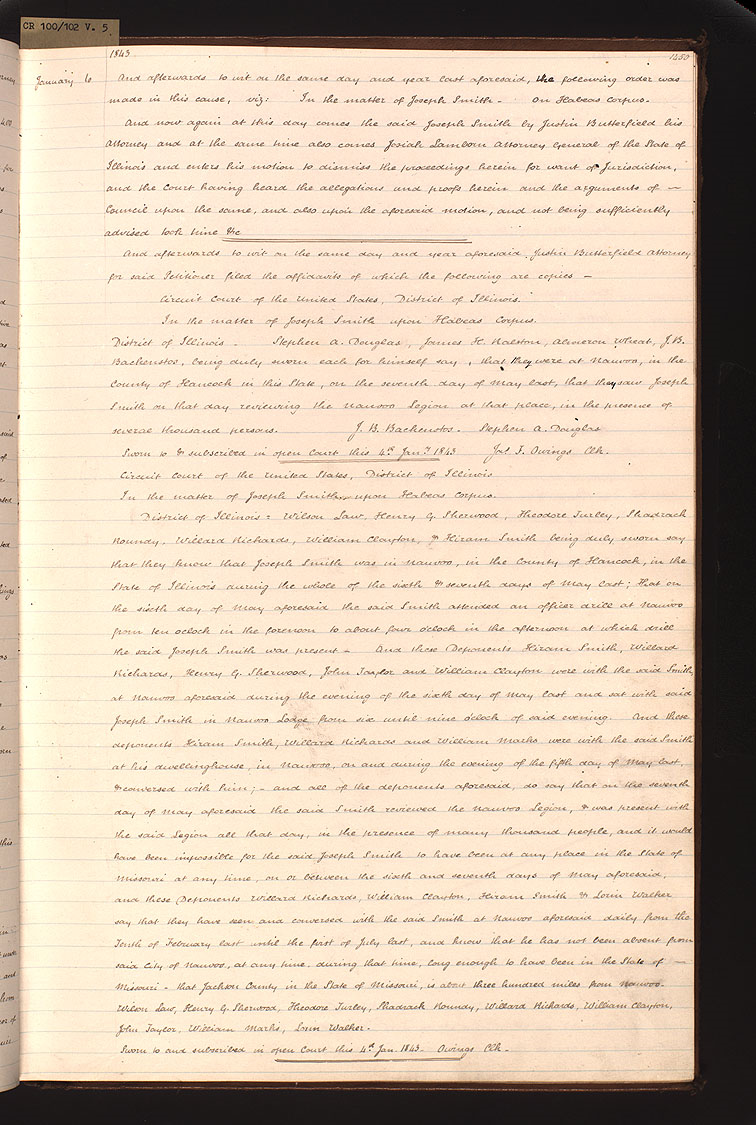 CR 100/102 V. 5
1843
1450
January 6 And afterwards to wit on the same day and year last aforesaid, the following order was
made in this cause, viz: In the matter of Joseph Smith - On Habeas Corpus.
And now again at this day comes the said Joseph Smith by Justin Butterfield his
Attorney and at the same time also comes Josiah Lamborn Attorney General of the State of
Illinois and enters his motion to dismiss the proceedings herein for want of Jurisdiction,
and the Court having heard the allegations and proofs herein and the arguments of —
Council upon the same, and also upon the aforesaid motion, and not being sufficiently
advised took time &c
And afterwards to wit on the same day and year aforesaid Justin Butterfield Attorney
for said Petitioner filed the affidavits of which the following are copies —
Circuit Court of the United States, District of Illinois.
In the matter of Joseph Smith upon Habeas Corpus.
District of Illinois - Stephen A. Douglas, James H. Ralston, Almeron Wheat, J. B.
Backenstos, being duly sworn each for himself say, that they were at Nauvoo, in the
County of Hancock in this State, on the seventh day of May last, that they saw Joseph
Smith on that day reviewing the Nauvoo Legion at that place, in the presence of
several thousand persons. J. B. Backenstos. Stephen A. Douglas
Sworn to & subscribed in open Court this 4th Jany 1843 Jas. F. Owings Clk.
Circuit Court of the United States, District of Illinois
In the matter of Joseph Smith, upon Habeas Corpus.
District of Illinois = Wilson Law, Henry G. Sherwood, Theodore Turley, Shadrack
Roundy, Willard Richards, William Clayton, & Hiram Smith being duly sworn say
that they know that Joseph Smith was in Nauvoo, in the County of Hancock, in the
State of Illinois during the whole of the sixth & seventh days of May last; that on
the sixth day of May aforesaid the said Smith attended an officer drill at Nauvoo
from ten oclock in the forenoon to about four oclock in the afternoon at which drill
the said Joseph Smith was present - And these Deponents Hiram Smith, Willard
Richards, Henry G. Sherwood, John Taylor and William Clayton were with the said Smith
at Nauvoo aforesaid during the evening of the sixth day of May last and sat with said
Joseph Smith in Nauvoo Lodge from six until nine oclock of said evening. And these
deponents Hiram Smith, Willard Richards and William Marks were with the said Smith
at his dwellinghouse, in Nauvoo, on and during the evening of the fifth day of May last,
& conversed with him; - and all of the deponents aforesaid, do say that on the seventh
day of May aforesaid the said Smith reviewed the Nauvoo Legion, & was present with
the said Legion all that day, in the presence of many thousand people, and it would
have been impossible for the said Joseph Smith to have been at any place in the State of
Missouri at any time, on or between the sixth and seventh days of May aforesaid,
and these Deponents Willard Richards, William Clayton, Hiram Smith & Lorin Walker
say that they have seen and conversed with the said Smith at Nauvoo aforesaid daily from the
Tenth of February last until the first of July last, and know that he has not been absent from
said City of Nauvoo, at any time during that time, long enough to have been in the State of —
Missouri - that Jackson County in the State of Missouri, is about three hundred miles from Nauvoo.
Wilson Law, Henry G. Sherwood, Theodore Turley, Shadrack Roundy, Willard Richards, William Clayton,
John Taylor, William Marks, Lorin Walker.
Sworn to and subscribed in open Court this 4th Jan. 1843. Owings Clk.